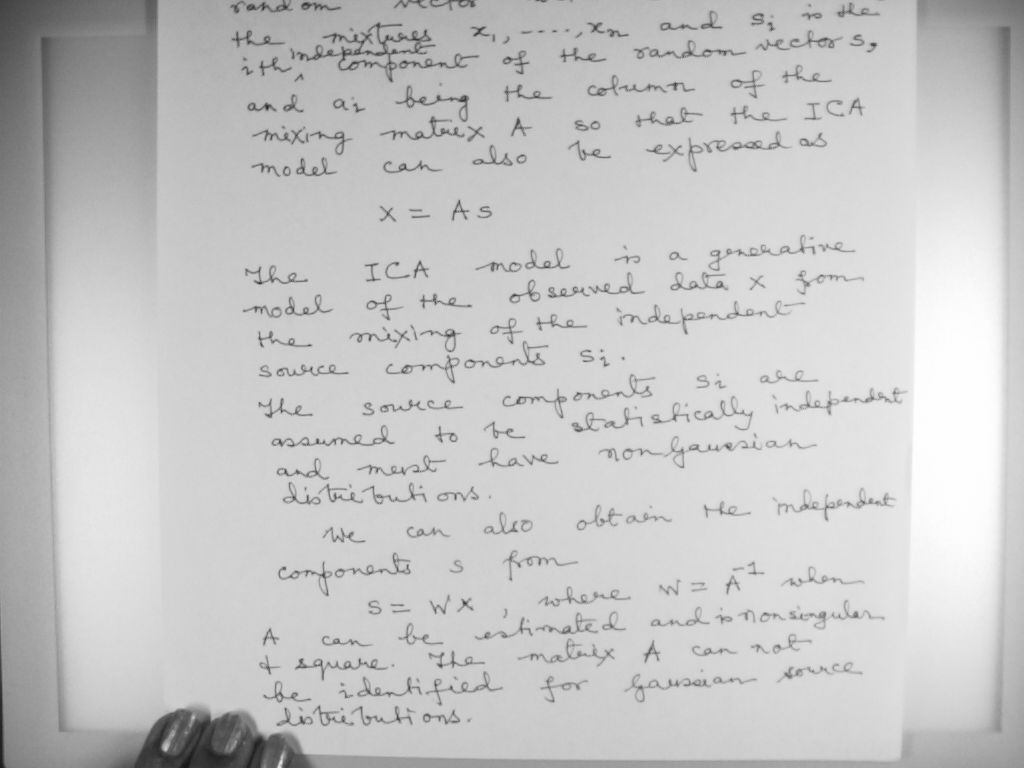 random vector
the mixtures x1, ----, xn and si is the
independent
ith ^ component of the random vector s,
and ai being the column of the
mixing matrix A so that the ICA
model can also be expressed as
X = As
The ICA model is a generative
model of the observed data x from
the mixing of the independent
source components si.
The source components si are
assumed to be statistically independent
and must have nongaussian
distributions.
We can also obtain the independent
components s from
S = WX, where W = A⁻¹ when
A can be estimated and is nonsingular
& square. The matrix A can not
be identified for gaussian source
distributions.